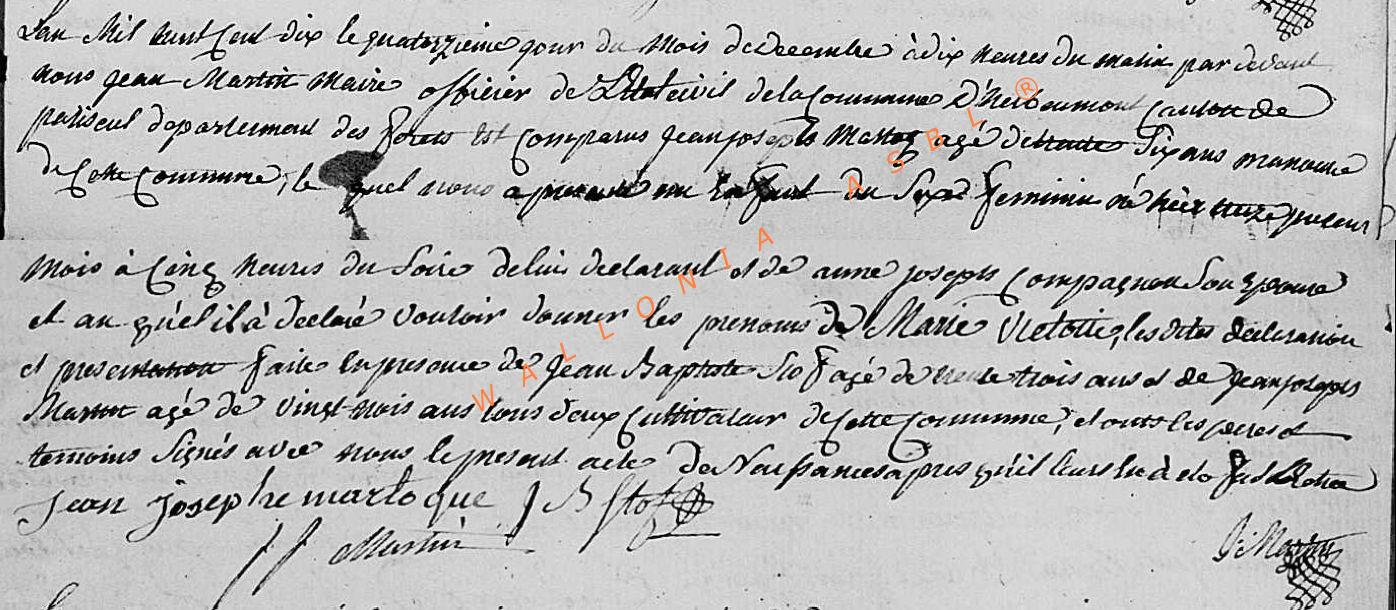 L'an Mil huit Cent dix le quatorzieme jour du Mois de decembre à dix heures du matin par devant
nous jean Martin maire officier de L'Etat civil de la Commune D'herbeumont canton de
paliseul departement des forets Est comparus jean joseph Mattoq agé de trente Six ans manouvre
de Cette Commune, le quel nous a presenté un Enfant du Sexe feminin né hier treize present
Mois à Cinq heures du Soir de lui declarant et de anne joseph Compagnon Son Epouse
et au quel il à declaré vouloir donner les prenoms de Marie Victoire, les dites declaration
et presentation faite En presence de jean Baptiste Stof agé de trente trois ans et de jean joseph
Martin agé de vingt trois ans tous deux cultivateur de Cette Commune, et onts les peres et
temoins Signés avec nous le present acte de Naissances apres qu'il leurs en à eté fait
jean josephe martoque J B Stof
J J Martin
J: Martin
W A L L O N I A A S B L ®